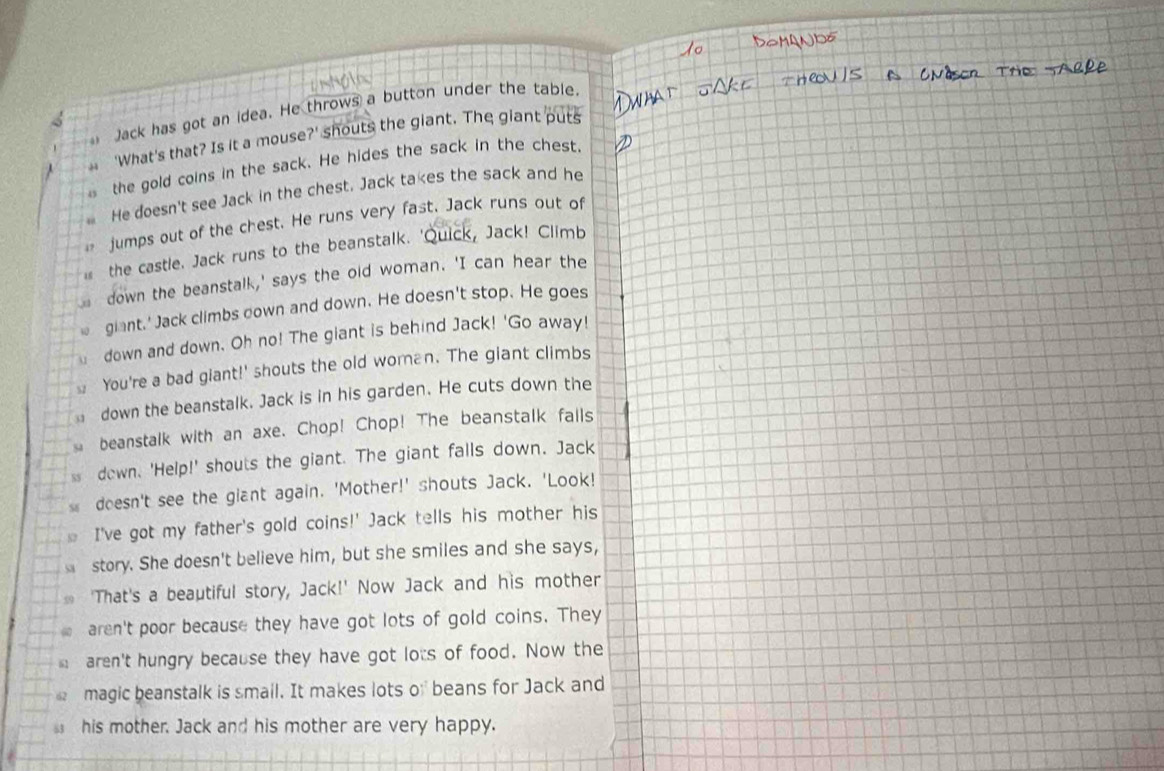 Jack has got an idea. He throws a button under the table.
'What's that? Is it a mouse?' shouts the giant. The giant puts
the gold coins in the sack. He hides the sack in the chest.
He doesn't see Jack in the chest. Jack takes the sack and he
jumps out of the chest. He runs very fast. Jack runs out of
the castle. Jack runs to the beanstalk. 'Quick, Jack! Climb
down the beanstalk,' says the old woman. 'I can hear the
giant.' Jack climbs down and down. He doesn't stop. He goes
down and down. Oh no! The giant is behind Jack! 'Go away!
You're a bad giant!' shouts the old woman. The giant climbs
down the beanstalk. Jack is in his garden. He cuts down the
beanstalk with an axe. Chop! Chop! The beanstalk falls
down. 'Help!' shouts the giant. The giant falls down. Jack
doesn't see the giant again. 'Mother!' shouts Jack. 'Look!
I've got my father's gold coins!' Jack tells his mother his
story. She doesn't believe him, but she smiles and she says,
'That's a beautiful story, Jack!' Now Jack and his mother
aren't poor because they have got lots of gold coins. They
aren't hungry because they have got lots of food. Now the
magic beanstalk is small. It makes lots of beans for Jack and
his mother. Jack and his mother are very happy.
10 DOMANDE
1) WHAT JAKE THROWS A THE TABLE
2)